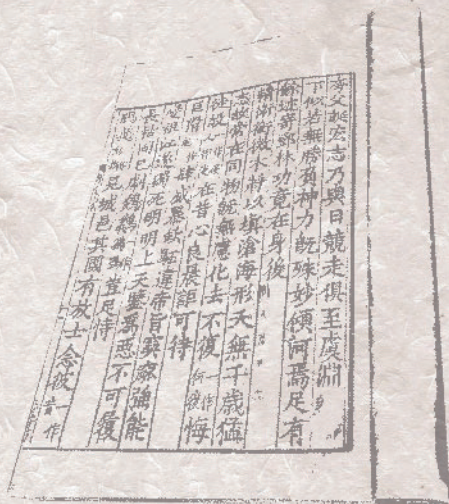 夸父誕宏志乃與日競走俱至虞淵
下似若無勝負神力既殊妙傾河焉足有
餘迹寄鄧林功竟在身後
精衛銜微木將以填滄海形夭無千歲猛
志故常在同物既無慮化去不復一作何復悔
徒設在昔心良晨詎可待
巨猾肆威暴欽駓違帝旨窫窳強能
變祖江遂獨死明明上天鑒為惡不可履
長枯固已劇鵕鶚豈足恃
見城邑其國有放士念彼一作昔